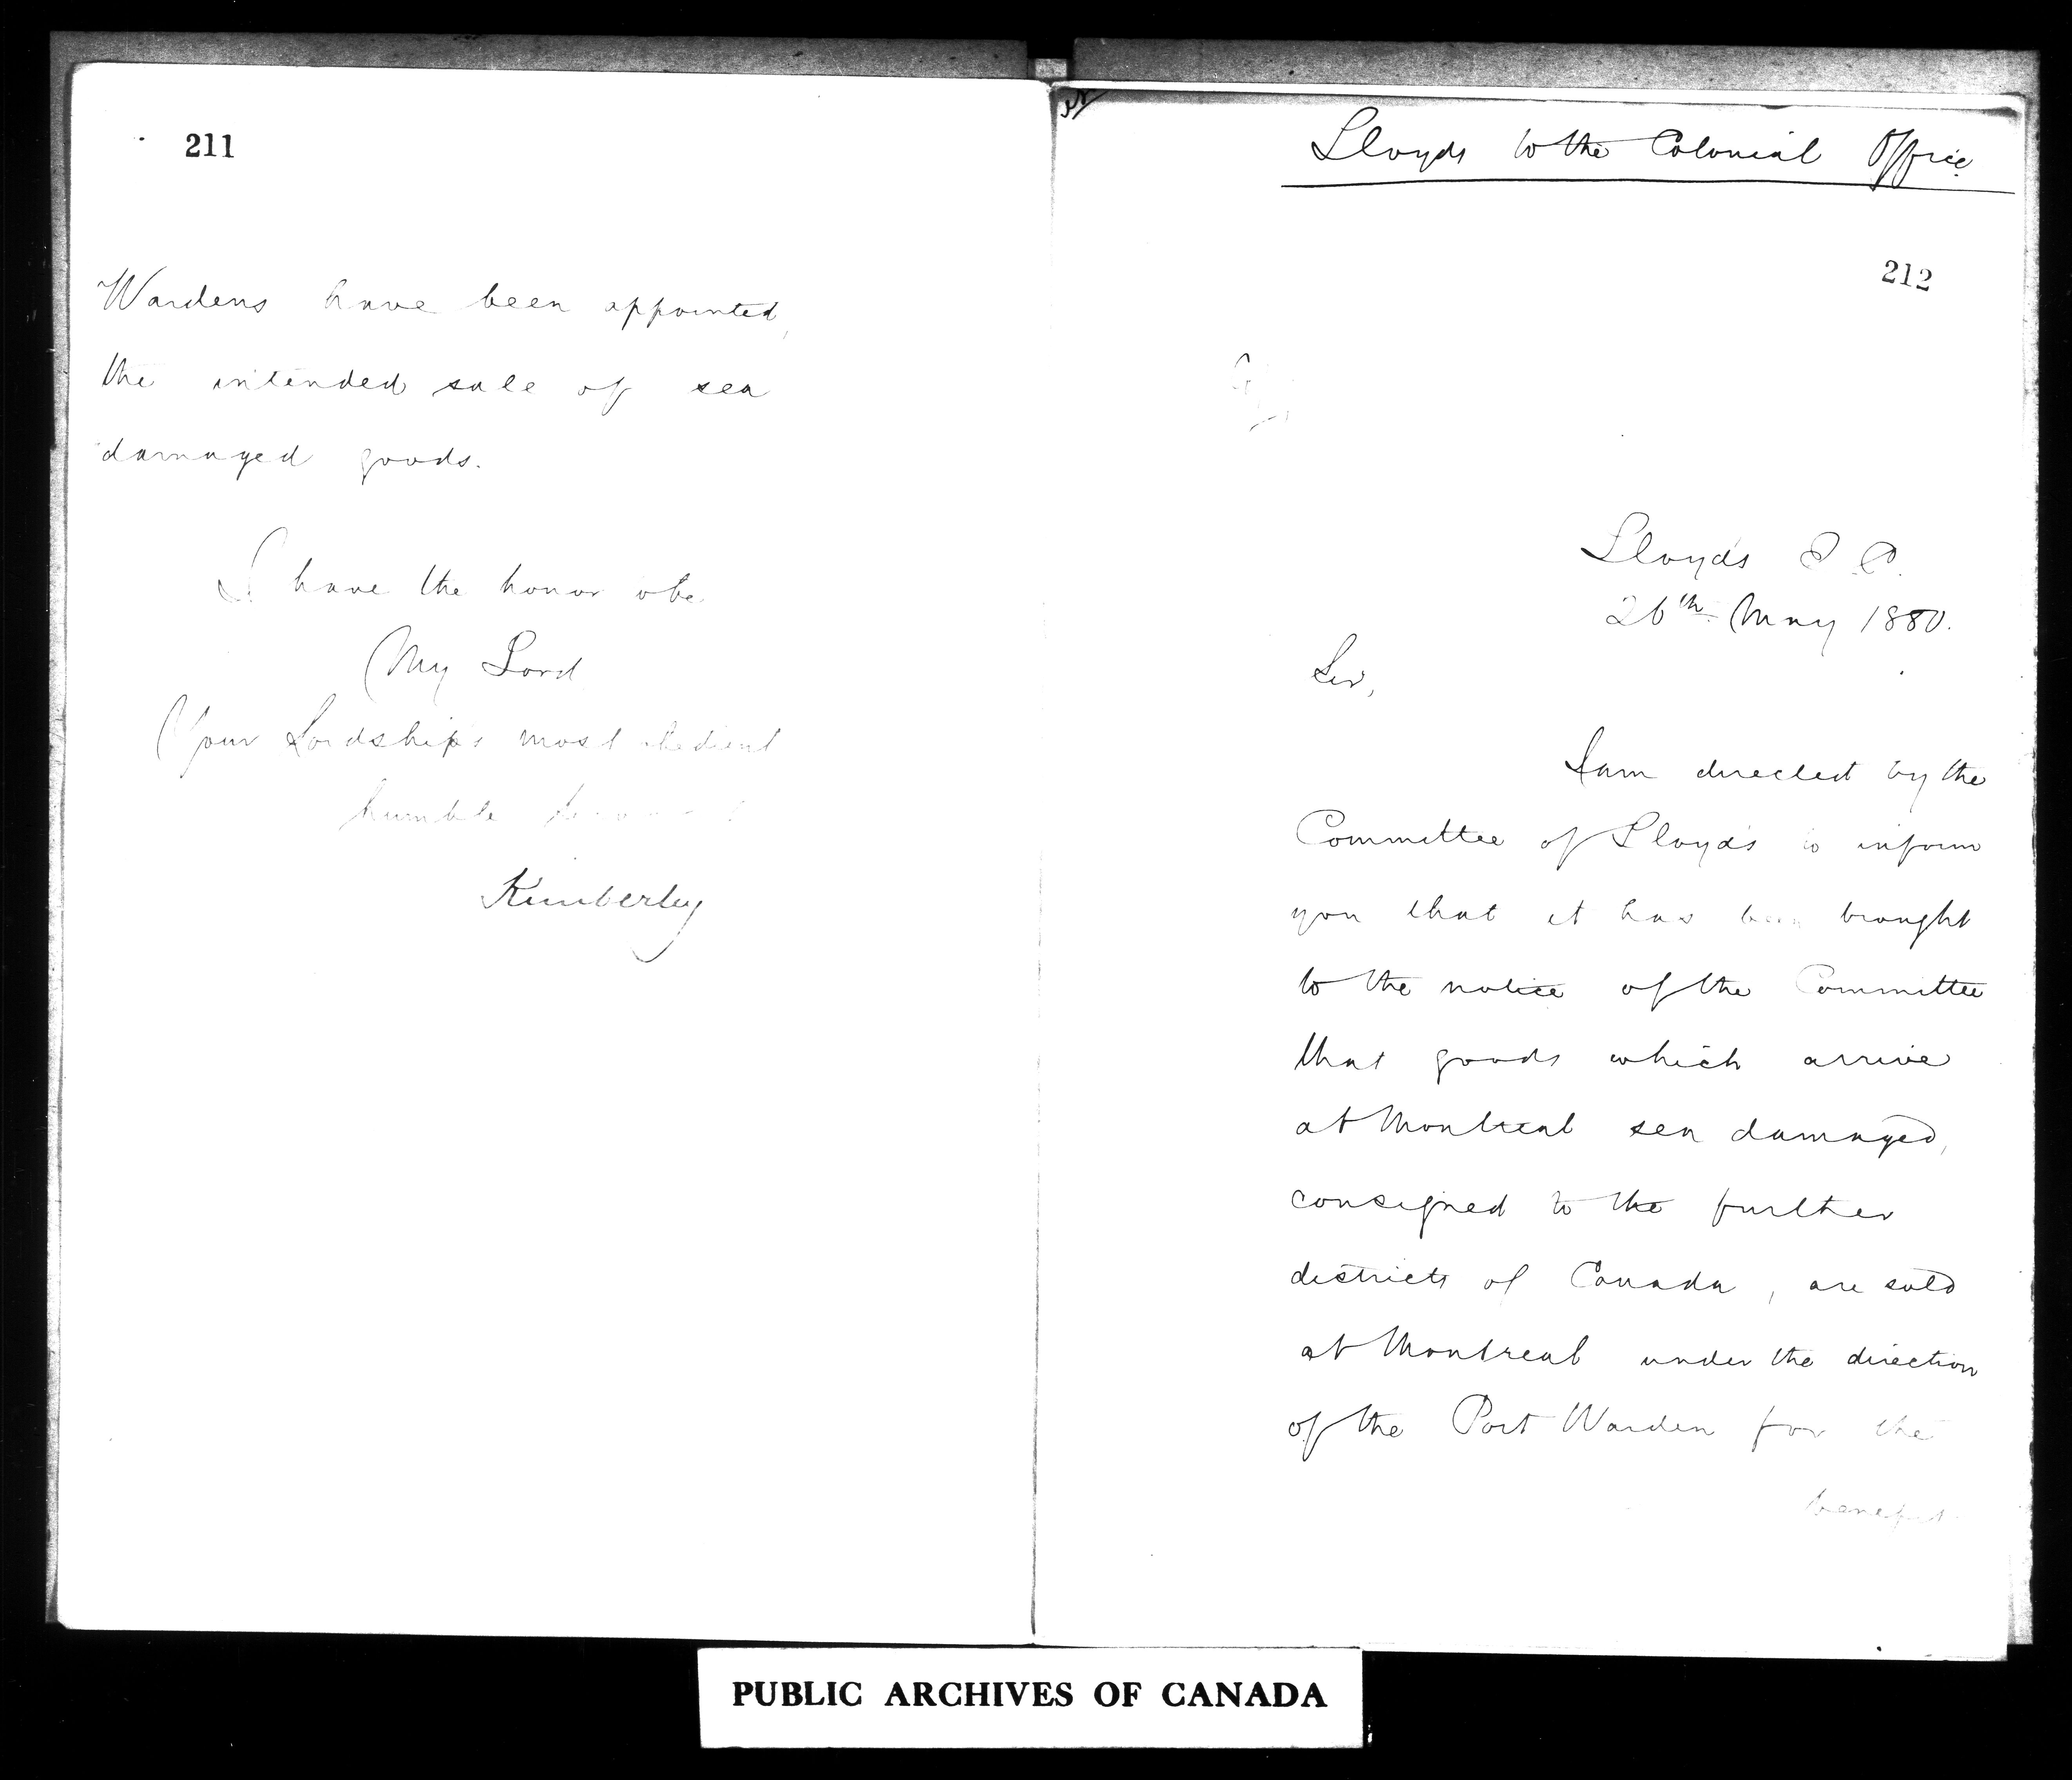 211
Wardens have been appointed,
the intended sale of sea
damaged goods.
I have the honor to be
My Lord
Your Lordship's most obedient
humble servant
Kimberley
Lloyds to the Colonial Office
212
Lloyd's
26th May 1880.
Sir,
I am directed by the
Committee of Lloyd's to inform
you that it has been brought
to the notice of the Committee
that goods which arrive
at Montreal sea damaged,
consigned to the further
districts of Canada, are sold
at Montreal under the direction
of the Port Warden for the
benefit
PUBLIC ARCHIVES OF CANADA